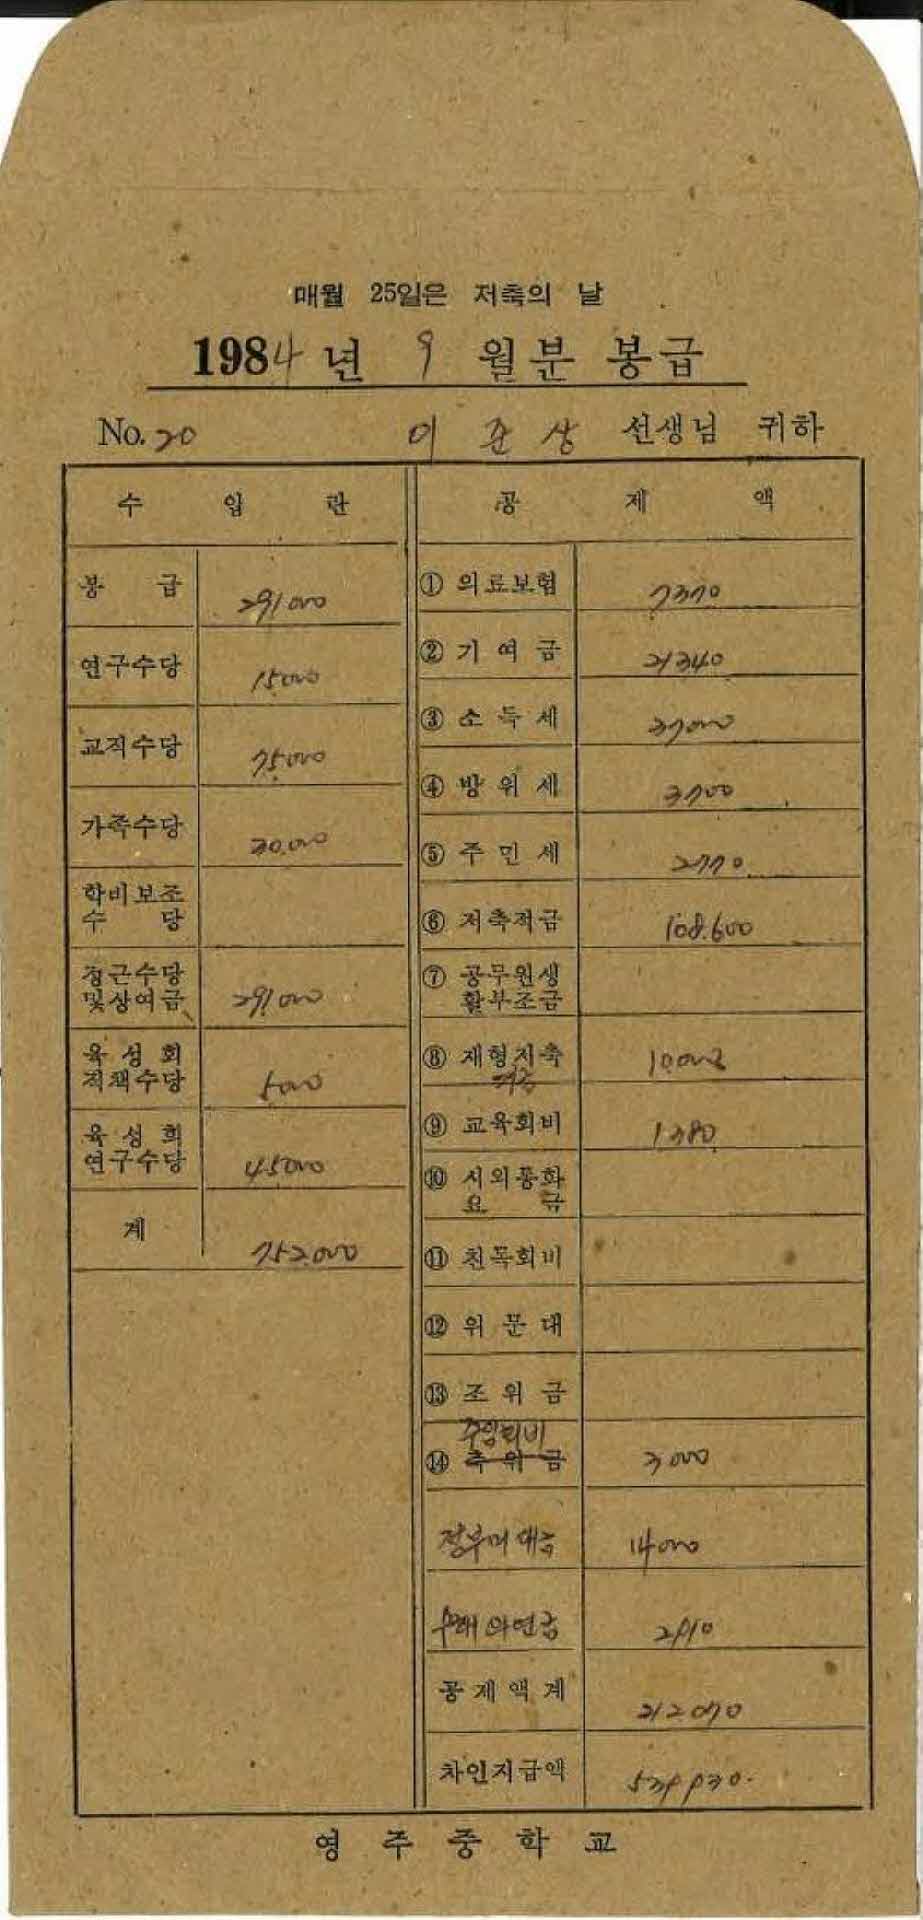 매월 25일은 저축의 날
1984년 9월분 봉급
No. 20 이준상 선생님 귀하
수입란
봉급 291000
연구수당 15000
교직수당 75000
가족수당 30.000
학비보조
수당
정근수당
및상여금 291000
육성회
직책수당 5000
육성회
연구수당 45000
계 752.000
공제액
① 의료보험 7370
② 기여금 21340
③ 소득세 37000
④ 방위세 3700
⑤ 주민세 2770
⑥ 저축적금 108.600
⑦ 공무원생
활부조금
⑧ 재형저축 10.000
⑨ 교육회비 1380
⑩ 시외통화
요금
⑪ 친목회비
⑫ 위문대
⑬ 조위금
주임회비
⑭ 축위금 3000
정부미대금 14000
2910
공제액계 212070
차인지급액 539930.
영주중학교